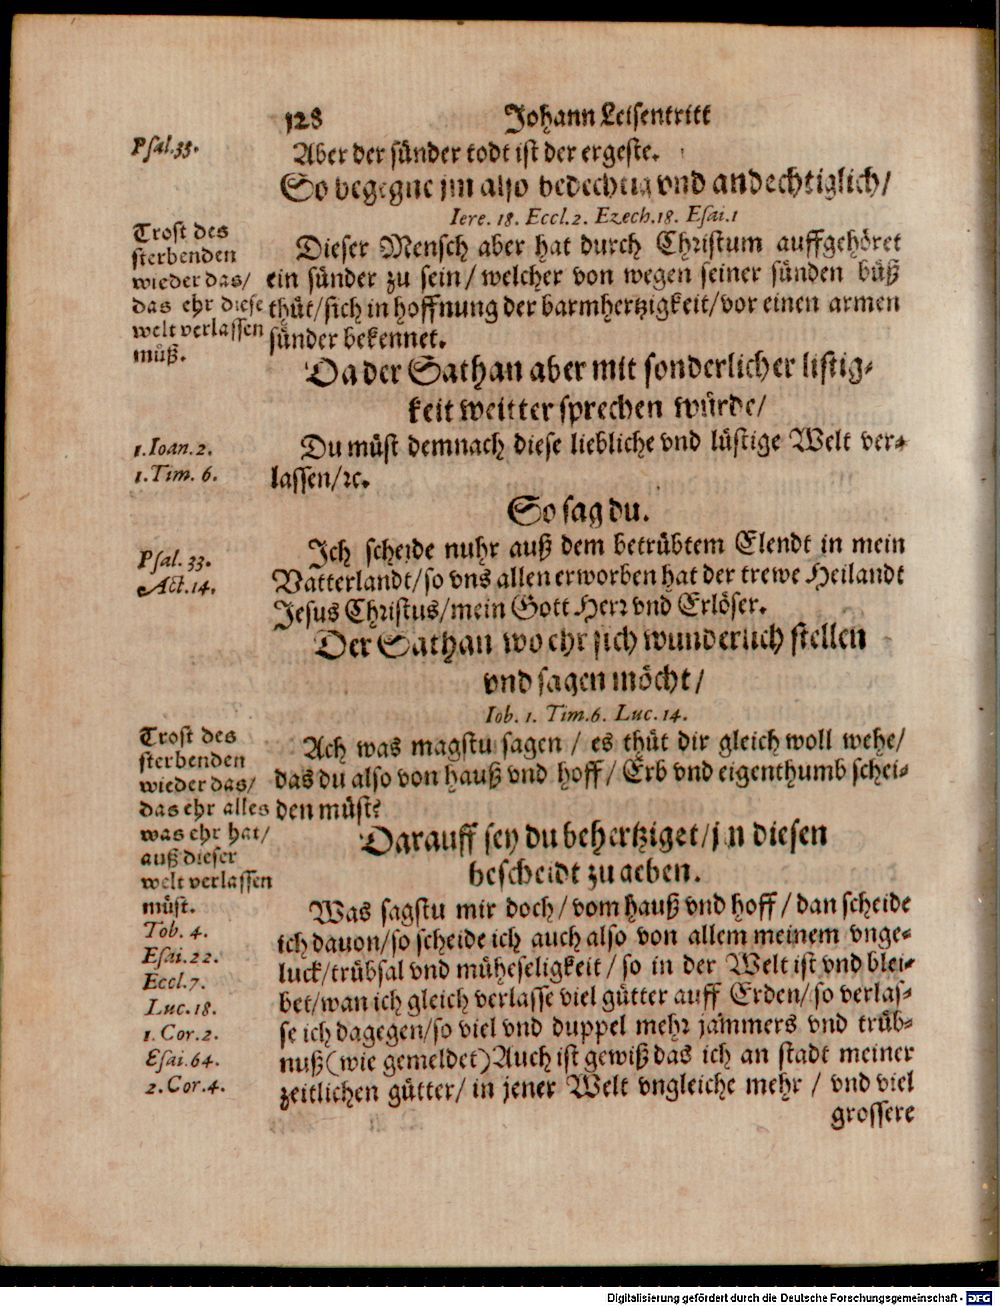 128 Johann Leisentritt
Psal.33.
Aber der sünder todt ist der ergeste.
So begegne jm also bedechtig vnd andechtiglich/
Iere. 18. Eccl.2. Ezech.18. Esai.1
Trost des
sterbenden
wieder das/
das ehr diese
welt verlassen
müß.
Dieser Mensch aber hat durch Christum auffgehöret
ein sünder zu sein/ welcher von wegen seiner sünden büß
thüt/sich in hoffnung der barmhertzigkeit/vor einen armen
sünder bekennet.
Da der Sathan aber mit sonderlicher listig-
keit weitter sprechen würde/
1.Ioan.2.
1.Tim. 6.
Du müst demnach diese liebliche vnd lüstige Welt ver-
lassen/ꝛc.
So sag du.
Psal. 33.
Act.14.
Ich scheide nuhr auß dem betrübtem Elendt in mein
Vatterlandt/so vns allen erworben hat der trewe Heilandt
Jesus Christus/mein Gott Herr vnd Erlöser.
Der Sathan wo ehr sich wunderlich stellen
vnd sagen möcht/
Iob. 1. Tim.6. Luc.14.
Trost des
sterbenden
wieder das/
das ehr alles
was ehr hat/
auß dieser
welt verlassen
müst.
Ach was magstu sagen / es thüt dir gleich woll wehe/
das du also von hauß vnd hoff/ Erb vnd eigenthumb schei-
den müst?
Darauff sey du behertziget/jn diesen
bescheidt zu geben.
Tob. 4.
Esai.22.
Eccl.7.
Luc.18.
1. Cor.2.
Esai.64.
2.Cor.4.
Was sagstu mir doch/ vom hauß vnd hoff/ dan scheide
ich dauon/so scheide ich auch also von allem meinem vnge-
luck/trübsal vnd müheseligkeit/ so in der Welt ist vnd blei-
bet/wan ich gleich verlasse viel gütter auff Erden/ so verlas-
se ich dagegen/so viel vnd duppel mehr jammers vnd trüb-
nuß(wie gemeldet) Auch ist gewiß das ich an stadt meiner
zeitlichen gütter/ in jener Welt vngleiche mehr / vnd viel
grossere
Digitalisierung gefördert durch die Deutsche Forschungsgemeinschaft - DFG